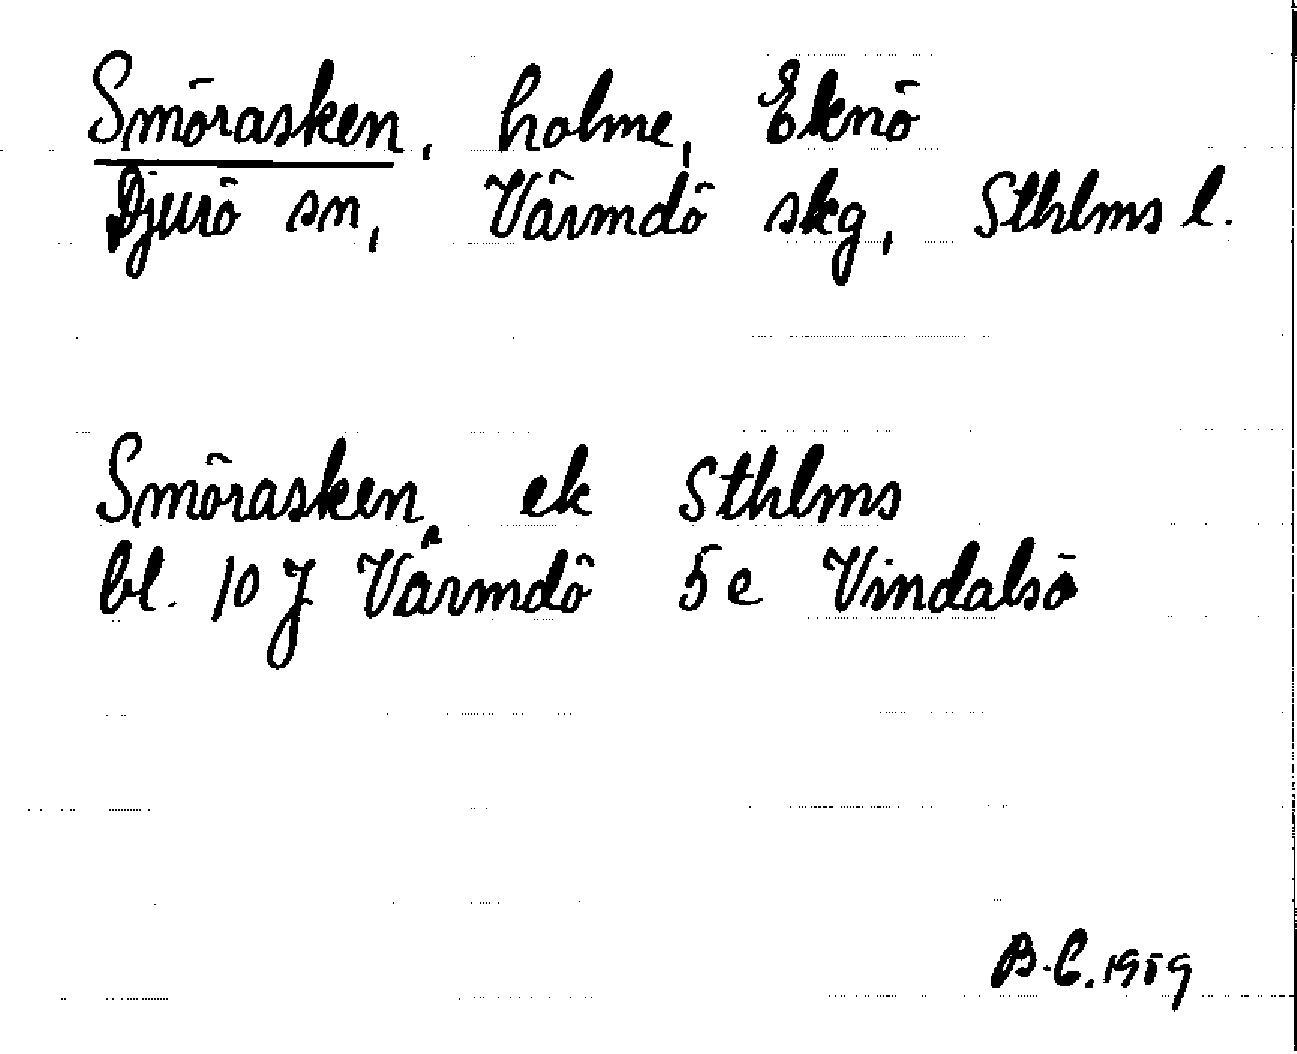 Smörasken, holme, Eknö
Djurö sn, Värmdö skg, Sthlms l.
Smörasken, ek Sthlms
bl. 10 J Värmdö 5 e Vindalsö
B.C. 1959